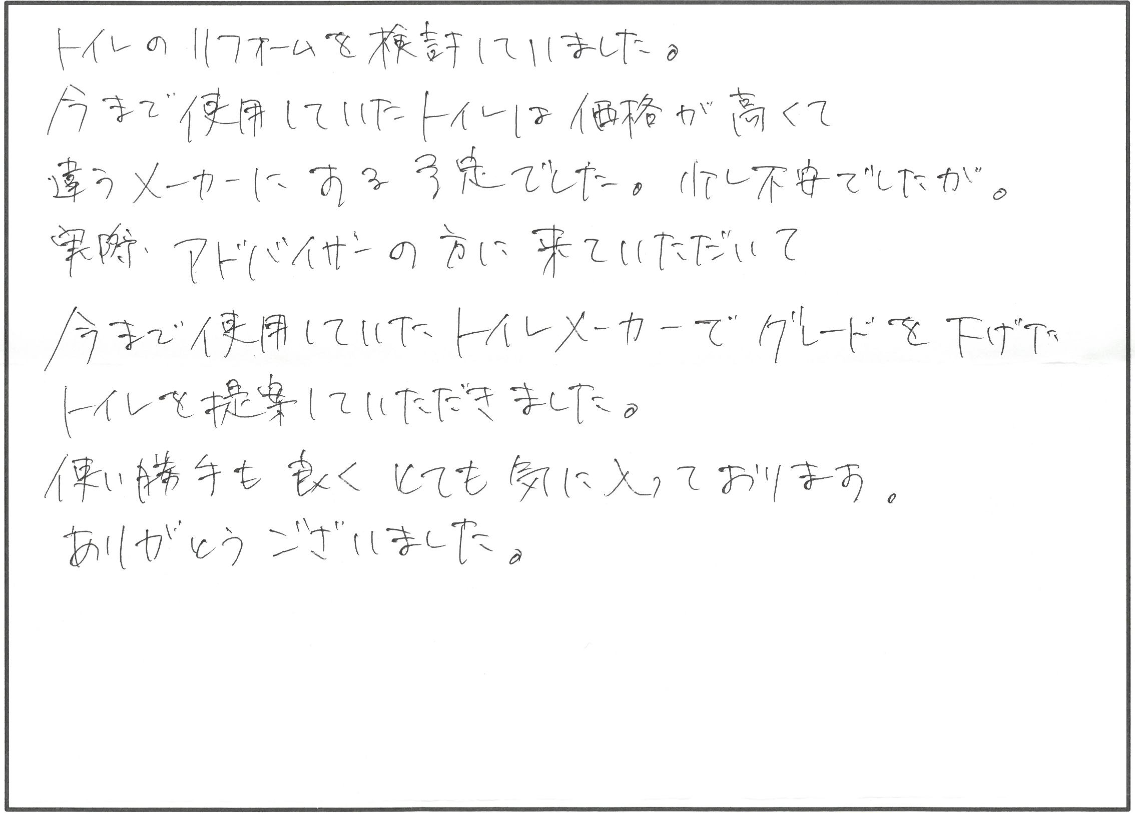 トイレのリフォームを検討していました。
今まで使用していたトイレは価格が高くて
違うメーカーにする予定でした。少し不安でしたが。
実際、アドバイザーの方に来ていただいて
今まで使用していたトイレメーカーでグレードを下げた
トイレを提案していただきました。
使い勝手も良くとても気に入っております。
ありがとうございました。